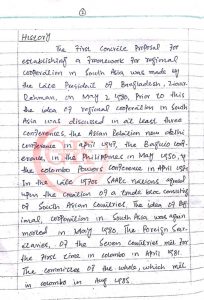 2
HISTORY
The First Concrete Proposal for
establishing a framework for regional
cooperation in South Asia was made by
the Late President of Bangladesh, Ziaur
Rehman, on May 2 1980, Prior to this
the idea of regional cooperation in South
Asia was discussed in at least three
conferences, the Asian Relation new delhi
conference in April 1947, the Baguio conf-
erence, in the Philippines in May 1950, &
the colombo Powers Conference in April
In the late 1970s SAARC nations agreed
upon the creation of a trade bloc consisting
of South Asian Countries The idea of
cooperation in South Asia was again
in May 1980, The Foreign Sec-
of the Seven Countries met for
the first time in colombo in April 1981.
The committee of the whole, which met
in colombo in Aug 1985